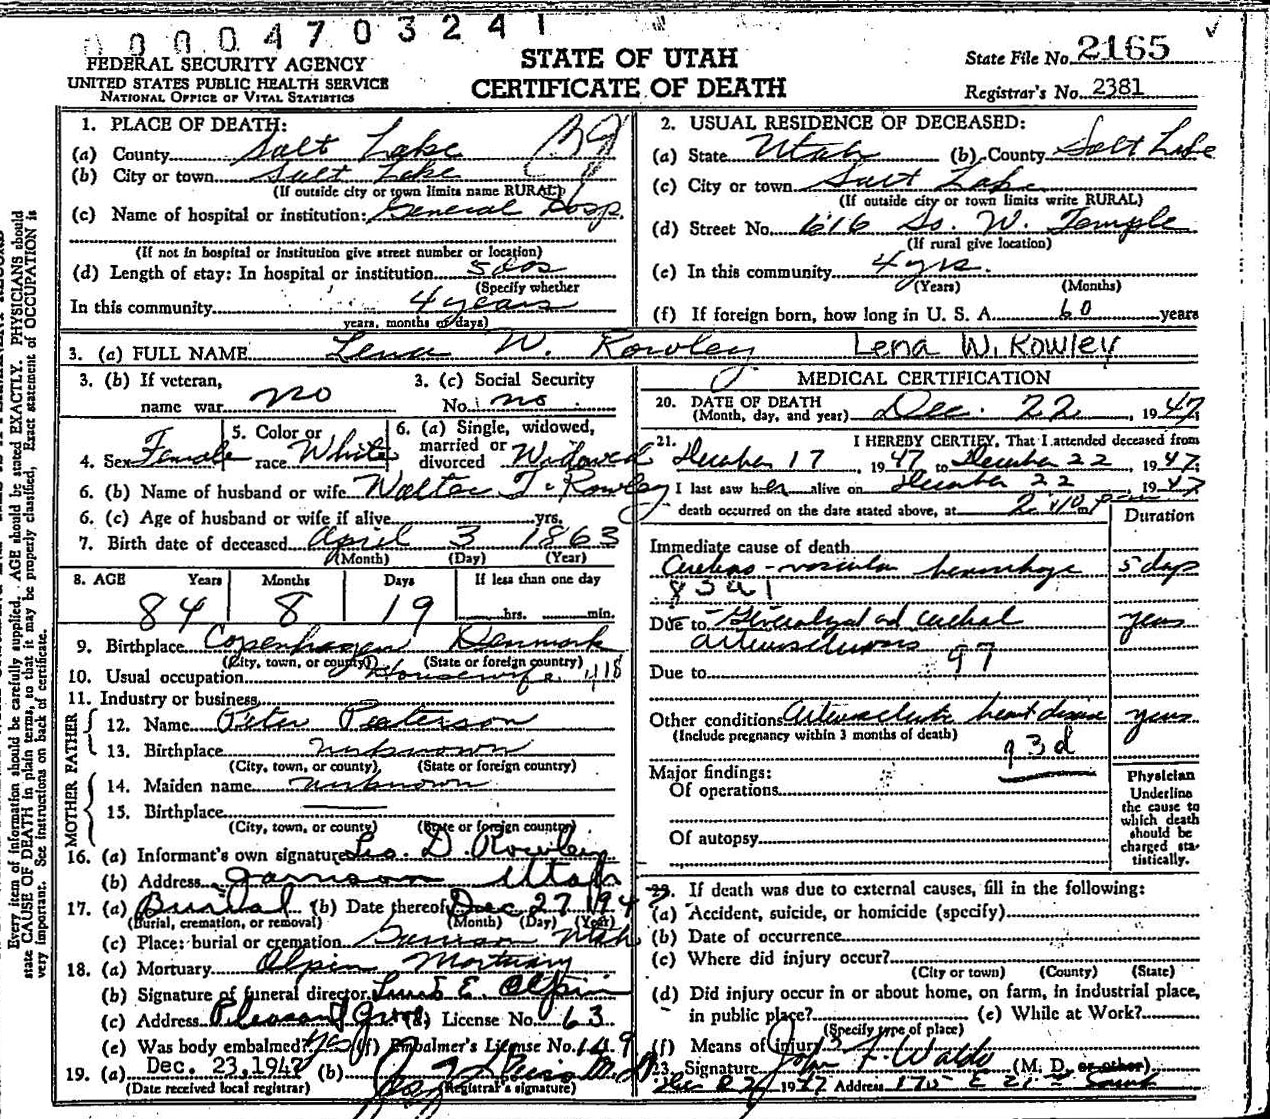 0000470324 1
FEDERAL SECURITY AGENCY
UNITED STATES PUBLIC HEALTH SERVICE
NATIONAL OFFICE OF VITAL STATISTICS
STATE OF UTAH
CERTIFICATE OF DEATH
State File No. 2165
Registrar's No. 2381
Every item of information should be carefully supplied. AGE should be stated EXACTLY. PHYSICIANS should
state CAUSE OF DEATH in plain terms, so that it may be properly classified. Exact statement of OCCUPATION is
very important. See instructions on back of certificate.
1. PLACE OF DEATH:
(a) County Salt Lake
(b) City or town Salt Lake
(If outside city or town limits name RURAL)
(c) Name of hospital or institution: General Hosp.
(If not in hospital or institution give street number or location)
(d) Length of stay: In hospital or institution 5 das
(Specify whether
In this community 4 years
years, months or days)
2. USUAL RESIDENCE OF DECEASED:
(a) State Utah (b) County Salt Lake
(c) City or town Salt Lake
(If outside city or town limits write RURAL)
(d) Street No. 616 So. W. Temple
(If rural give location)
(e) In this community 4 yrs.
(Years) (Months)
(f) If foreign born, how long in U. S. A. 60 years
3. (a) FULL NAME Lena W. Rowley Lena W. Rowley
3. (b) If veteran,
name war no
3. (c) Social Security
No. no
4. Sex Female
5. Color or
race White
6. (a) Single, widowed,
married or
divorced Widowed
6. (b) Name of husband or wife Walter T. Rowley
6. (c) Age of husband or wife if alive yrs.
7. Birth date of deceased April 3 1863
(Month) (Day) (Year)
8. AGE Years Months Days If less than one day
84 8 19 hrs. min.
9. Birthplace Copenhagen Denmark
(City, town, or county) (State or foreign country)
10. Usual occupation Housewife
11. Industry or business
FATHER
12. Name Peter Peterson
13. Birthplace unknown
(City, town, or county) (State or foreign country)
MOTHER
14. Maiden name unknown
15. Birthplace
(City, town, or county) (State or foreign country)
16. (a) Informant's own signature D. Rowley
(b) Address Garrison Utah
17. (a) Burial (b) Date thereof Dec 27 194
(Burial, cremation, or removal) (Month) (Day) (Year)
(c) Place: burial or cremation Utah
18. (a) Mortuary Olpin Mortuary
(b) Signature of funeral director E. Olpin
(c) Address Pleasant Grove (d) License No. 63
(e) Was body embalmed? yes (f) Embalmer's License No. 149
19. (a) Dec. 23, 1947 (b)
(Date received local registrar) (Registrar's signature)
MEDICAL CERTIFICATION
20. DATE OF DEATH
(Month, day, and year) Dec. 22, 1947
21. I HEREBY CERTIFY, That I attended deceased from
December 17, 1947 to December 22, 1947
I last saw her alive on December 22 1947
death occurred on the date stated above, at 2:10 m pm
Duration
Immediate cause of death
Cerebro-vascular hemorrhage 5 days
83a1
Due to Generalized and cerebral years
arteriosclerosis 97
Due to
Other conditions Arteriosclerotic heart disease years
(Include pregnancy within 3 months of death)
93d
Major findings:
Of operations
Of autopsy
Physician
Underline
the cause to
which death
should be
charged sta-
tistically.
If death was due to external causes, fill in the following:
(a) Accident, suicide, or homicide (specify)
(b) Date of occurrence
(c) Where did injury occur?
(City or town) (County) (State)
(d) Did injury occur in or about home, on farm, in industrial place,
in public place? (e) While at Work?
(Specify type of place)
(f) Means of injury
23. Signature John F. Waldo (M. D. or other)
Dec 22 1947 Address 175 E 21st South